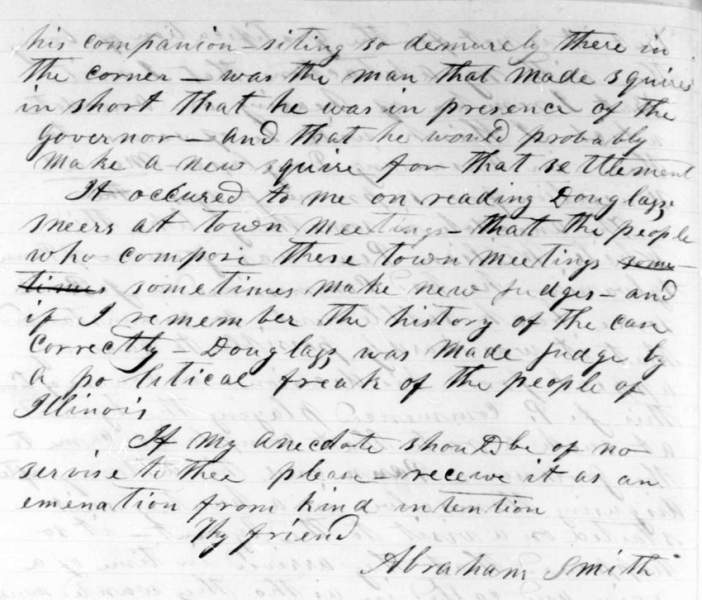 his companion—siting so demurely there in
the corner—was the man that made squires
in short that he was in presence of the
Governor—and that he would probably
make a new squire for that settlement
It occured to me on reading Douglass,
sneers at town meetings—that the people
who compose these town meetings some-
times sometimes make new judges—and
if I remember the history of the case
correctly—Douglass was made judge by
a political freak of the people of
Illinois
If my anecdote should be of no
servise to thee please—receive it as an
emenation from kind intention
Thy friend
Abraham Smith